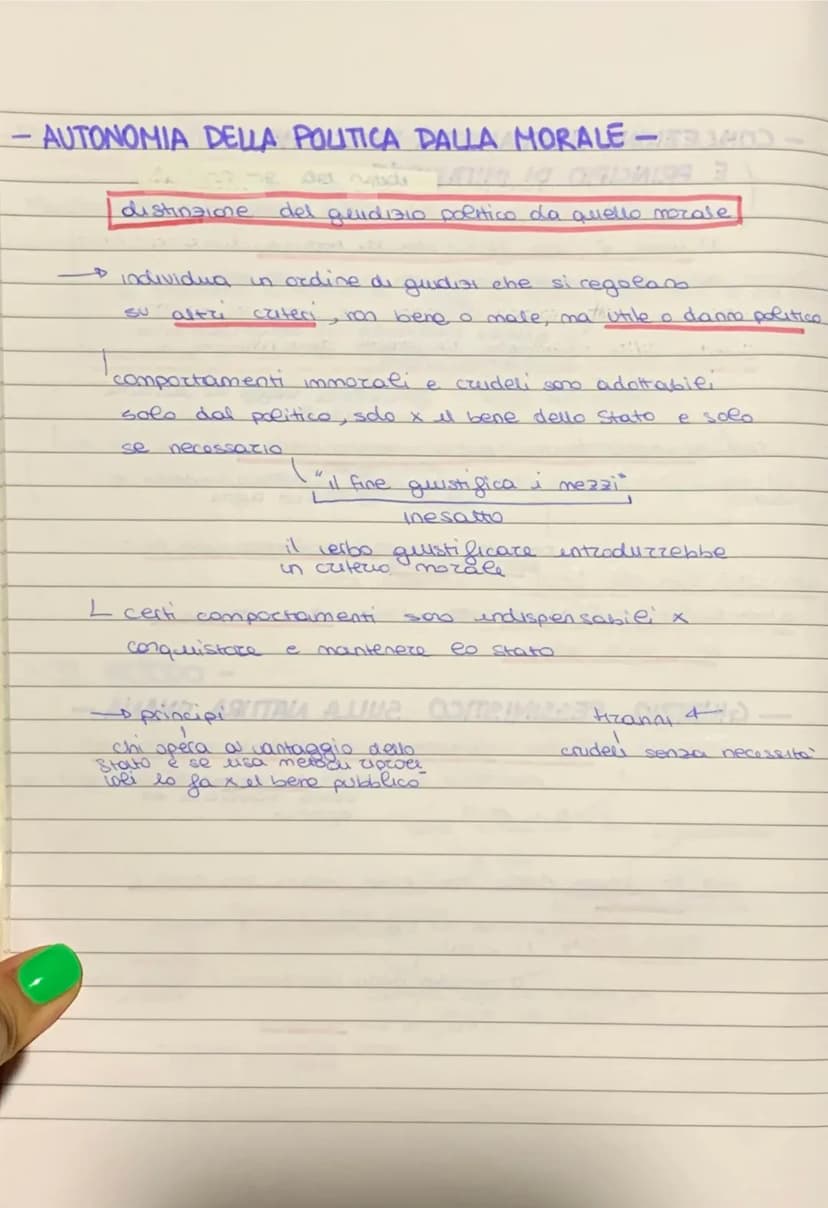 - AUTONOMIA DELLA POLITICA DALLA MORALE -
distinzione del giudizio politico da quello morale
→ individua un ordine di giudizi che si regolano
su altri criteri, non bene o male, ma utile o danno politico
comportamenti immorali e crudeli sono adottabili
solo dal politico, solo x il bene dello Stato e solo
se necessario
"il fine giustifica i mezzi"
inesatto
il verbo giustificare introdurrebbe
un criterio morale
certi comportamenti sono indispensabili x
conquistare e mantenere lo stato
→ principi
tiranni ←
chi opera a vantaggio dello
crudeli senza necessità
Stato e se usa metodi riprove-
voli lo fa x il bene pubblico